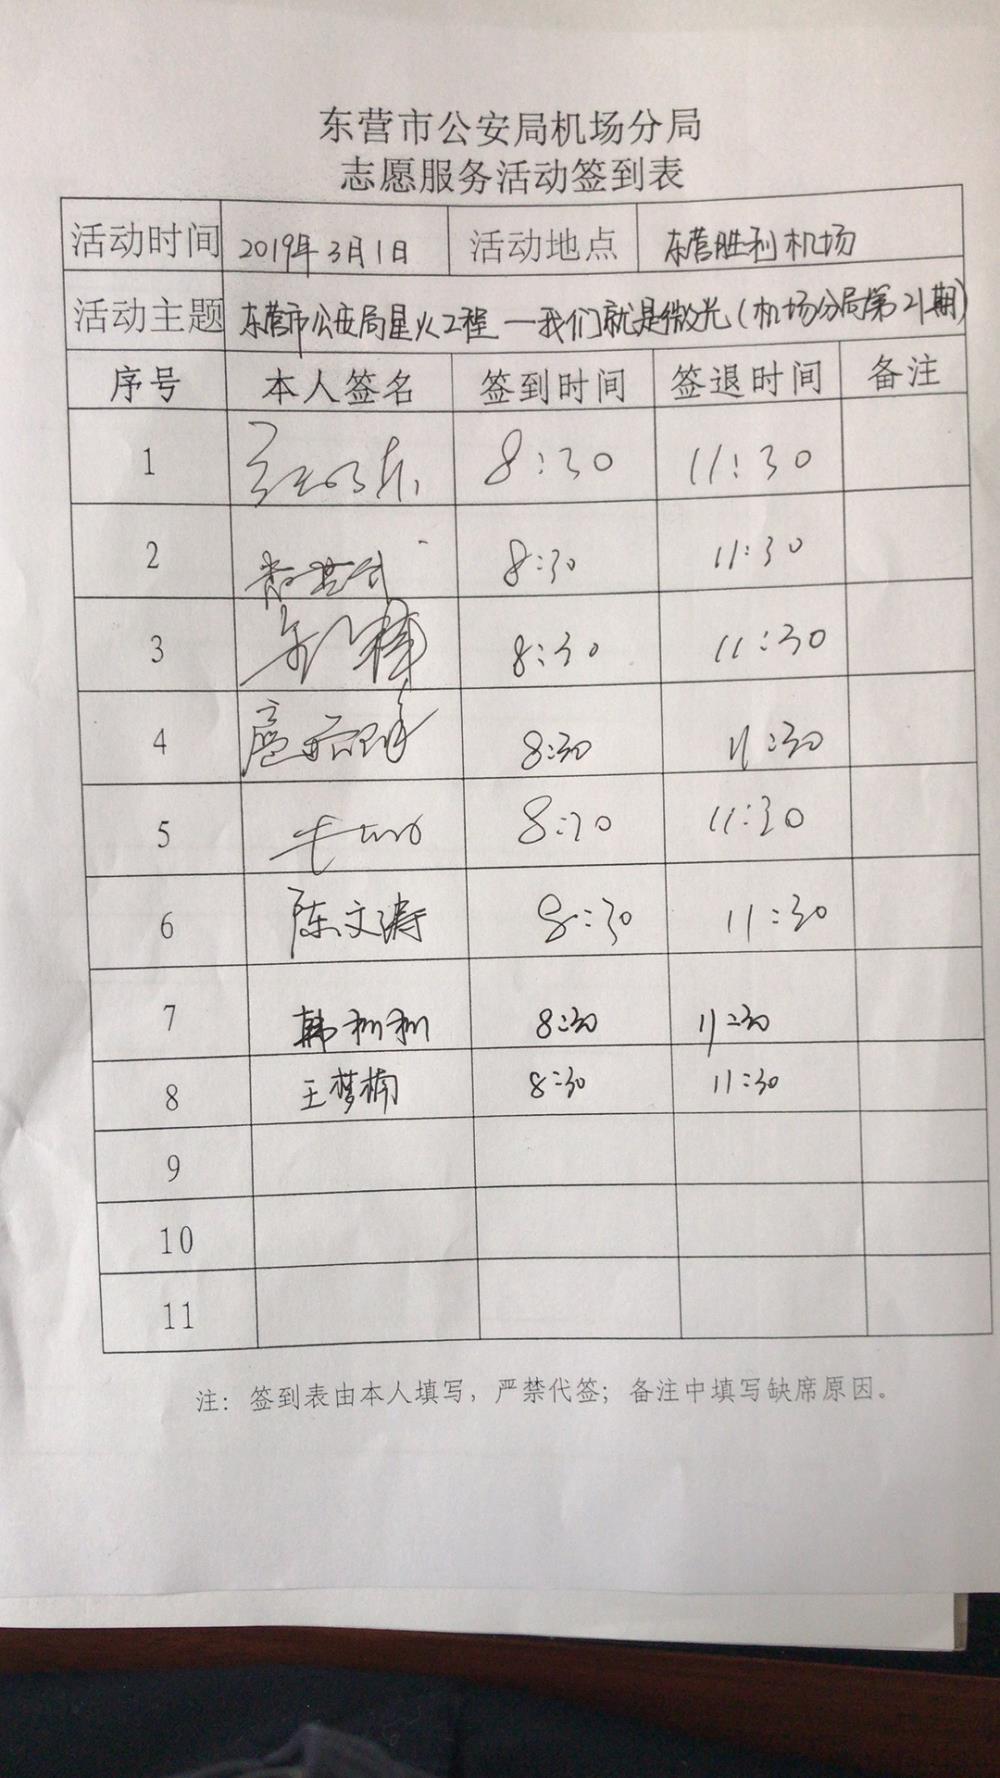 东营市公安局机场分局
志愿服务活动签到表
活动时间 2019年3月1日 活动地点 东营胜利机场
活动主题 东营市公安局星火工程—我们就是微光(机场分局第21期)
序号 本人签名 签到时间 签退时间 备注
1 8:30 11:30
2 8:30 11:30
3 8:30 11:30
4 8:30 11:30
5 8:30 11:30
6 陈文涛 8:30 11:30
7 韩利利 8:30 11:30
8 王梦楠 8:30 11:30
9
10
11
注：签到表由本人填写，严禁代签；备注中填写缺席原因。